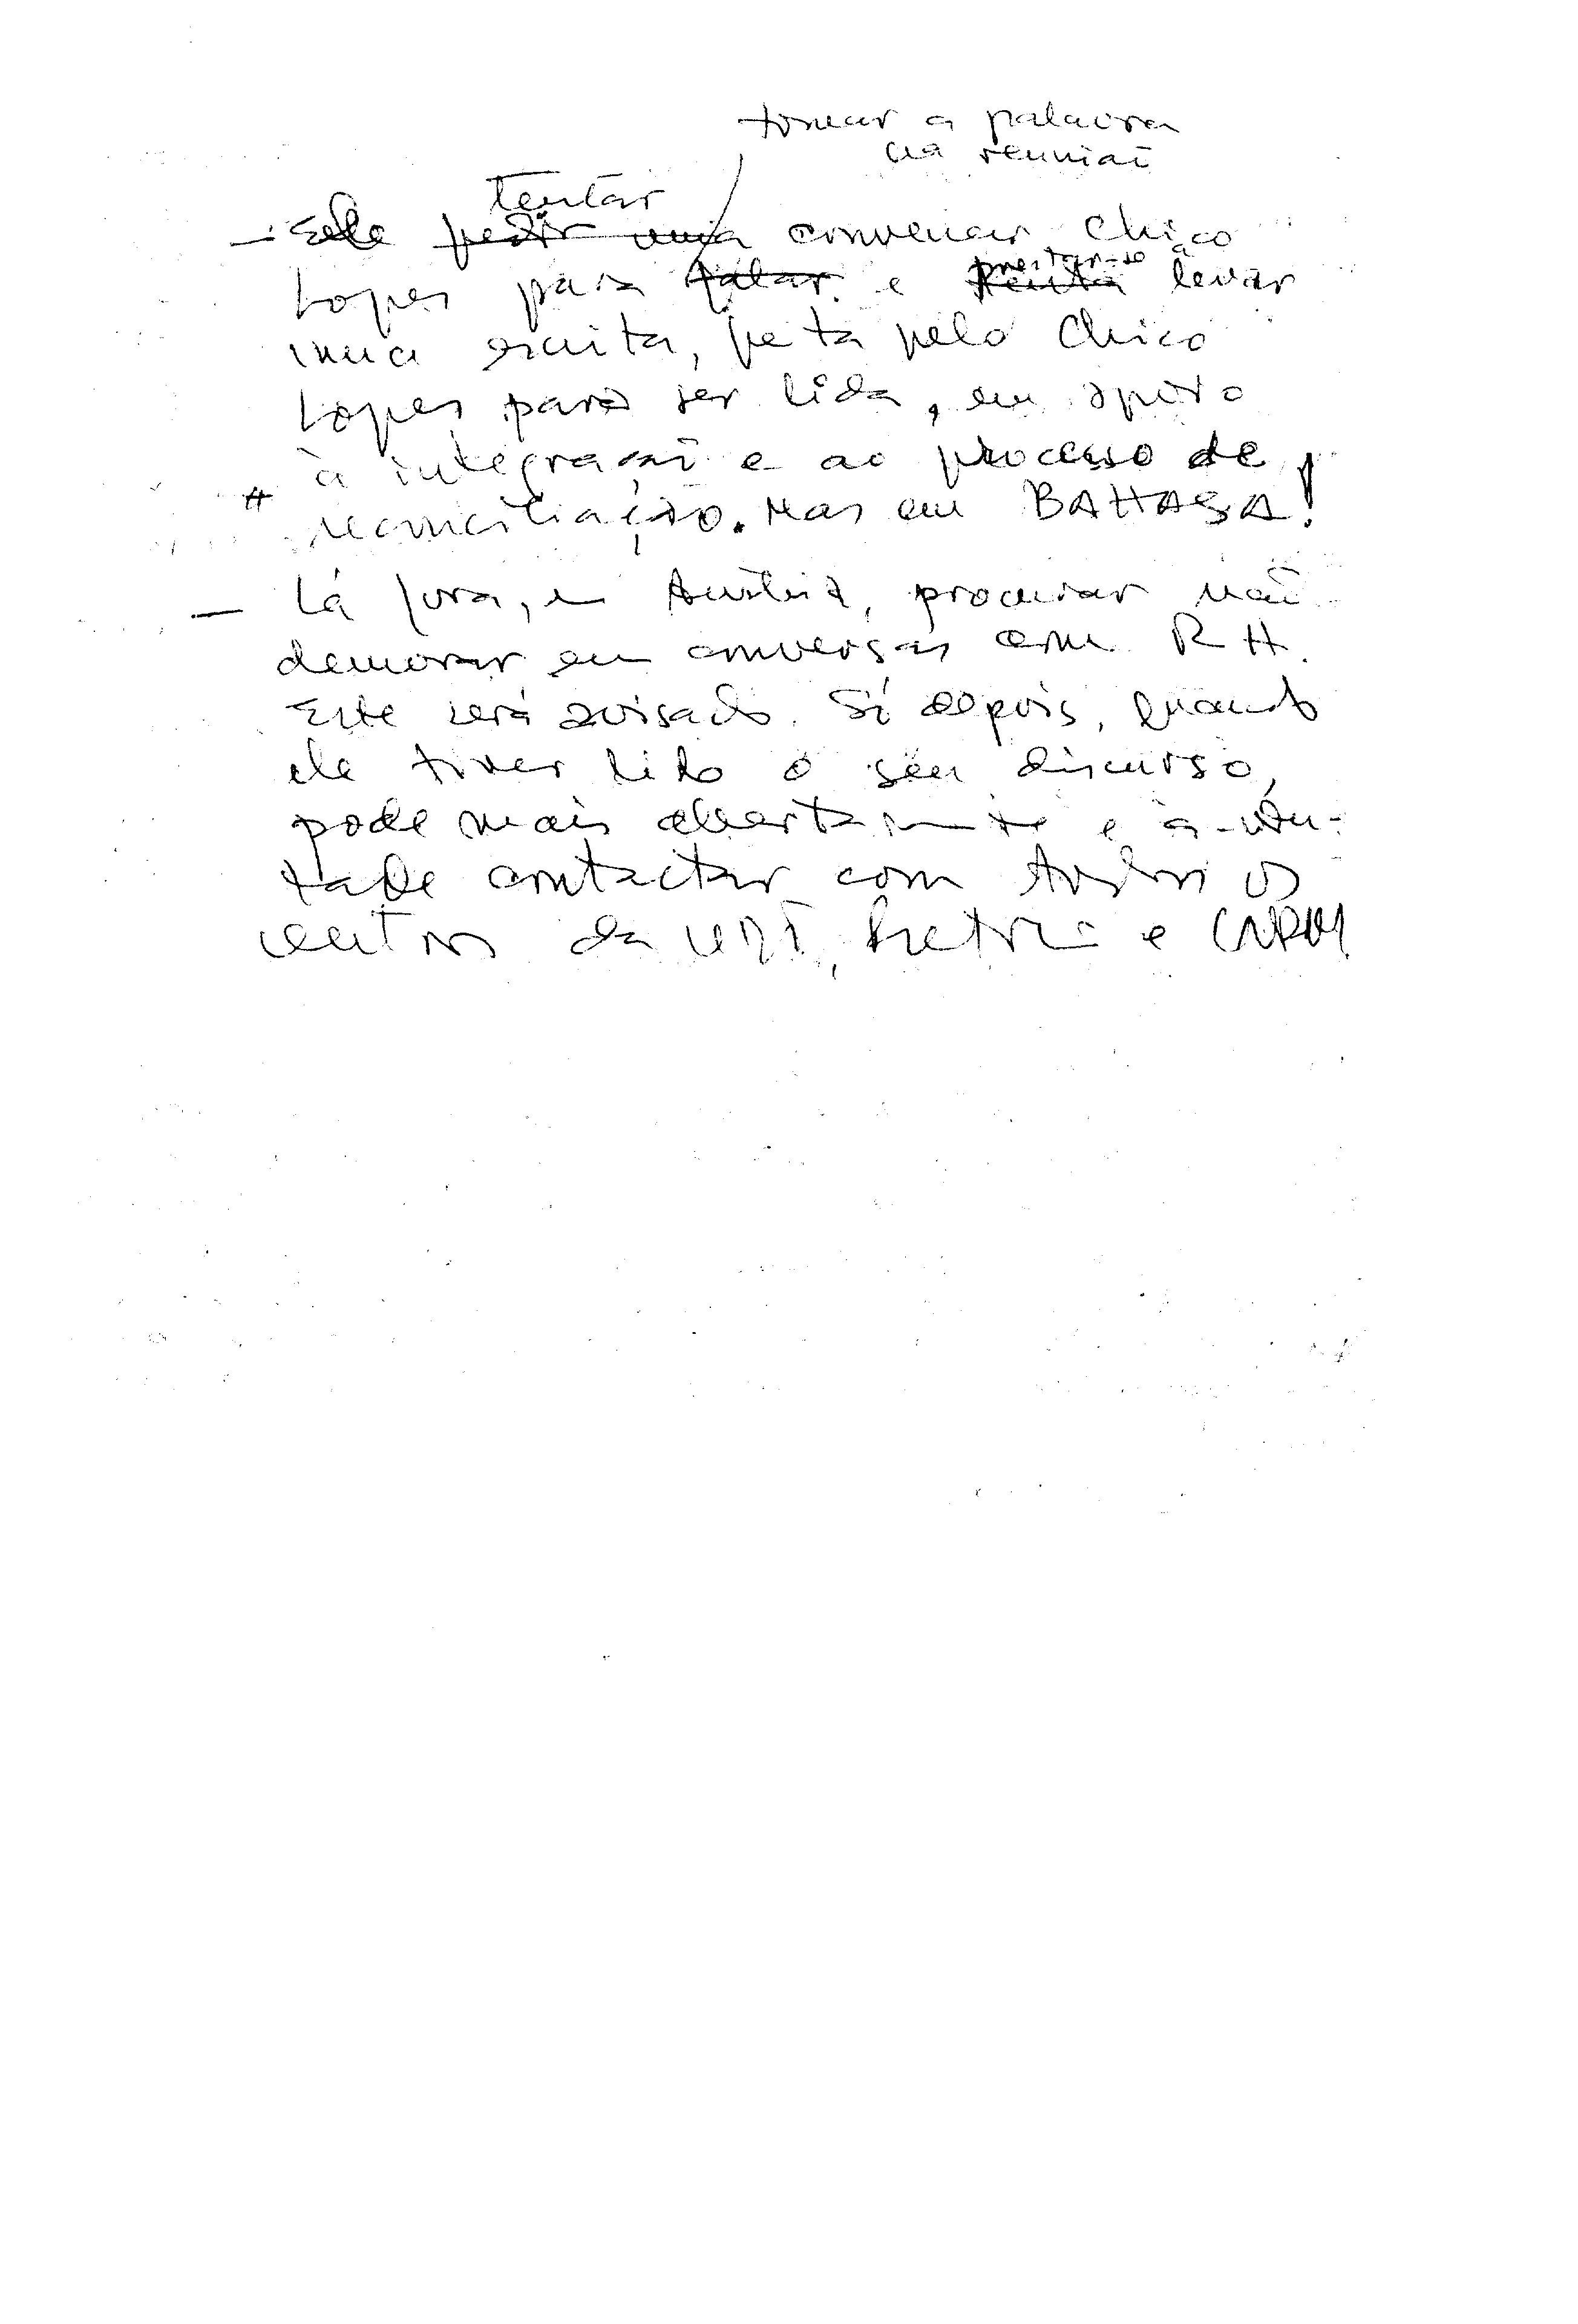 tomar a palavra
na reunião
tentar
– Ele pedir uma convencer Chico
prestar-se a
Lopes para falar e levar
uma escrita, feita pelo Chico
Lopes para ser lida, em apoio
à integração e ao processo de
# reconciliação. Mas em BAHASA!
– Lá fora, em Áustria, procurar não
demorar em conversas com RH.
Este será avisado. Só depois, quando
ele tiver lido o seu discurso,
pode mais abertamente e à-von-
tade contactar com todos os
da UDT, Fretilin e CNRM